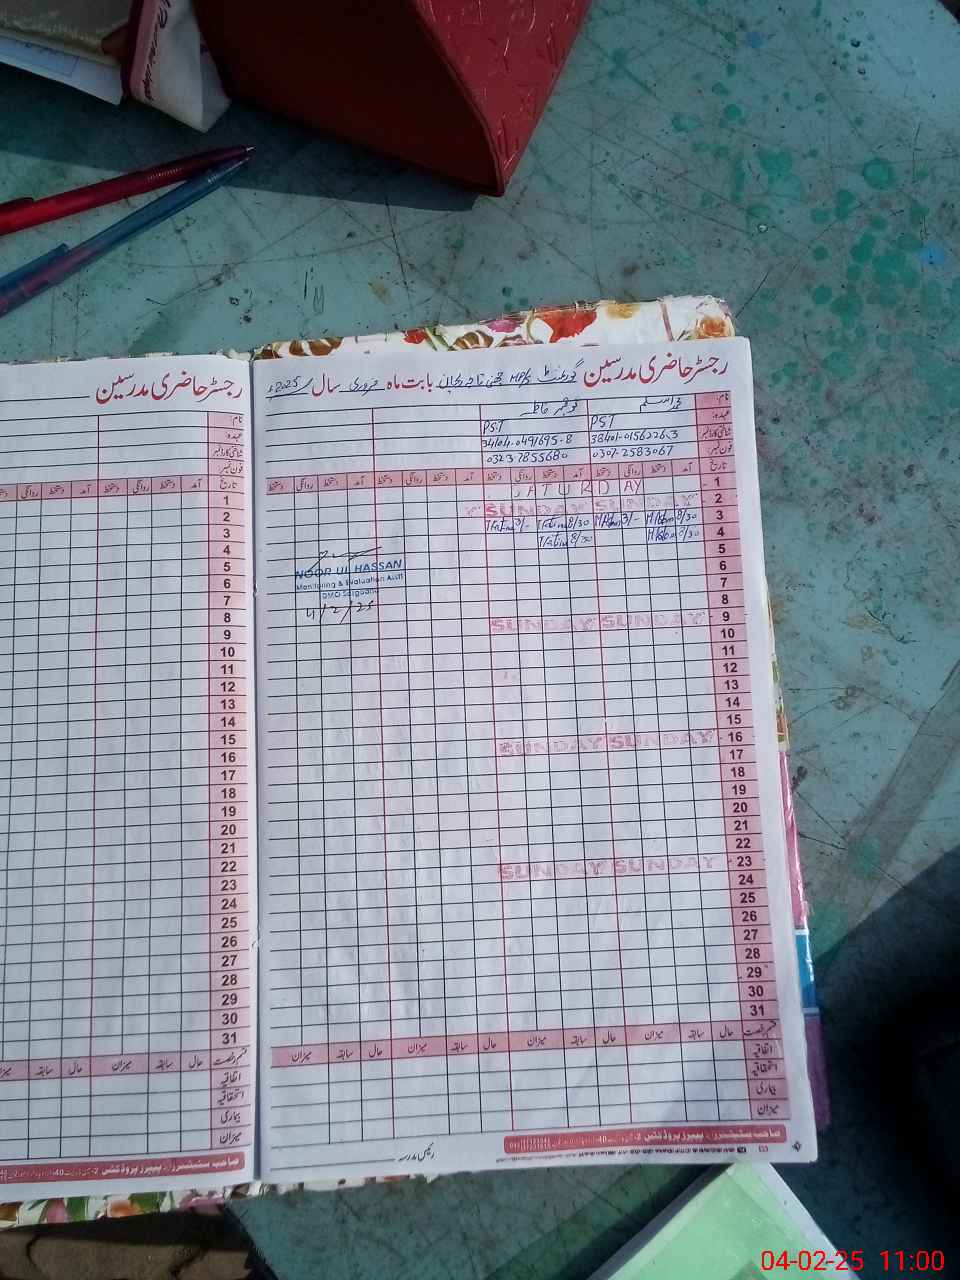 رجسٹر حاضری مدرسین
رجسٹر حاضری مدرسین گورنمنٹ MP/S بابت ماہ فروری سال 2025ء
نام:
عہدہ: PST PST
شناختی کارڈ نمبر: 38401-0156226-3 34104-0491695-8
فون نمبر: 0307-2583067 0323-7855680
تاریخ آمد دستخط روانگی دستخط آمد دستخط روانگی دستخط آمد دستخط روانگی دستخط آمد دستخط روانگی دستخط
1 SATURDAY
2 SUNDAY SUNDAY
3 8/30 3/- 8/30 3/-
4 8/30 8/30
5
6
7
8
9 SUNDAY SUNDAY
10
11
12
13
14
15
16 SUNDAY SUNDAY
17
18
19
20
21
22
23 SUNDAY SUNDAY
24
25
26
27
28
29
30
31
NOOR UL HASSAN
Monitoring & Evaluation Asstt
DMO Sargodha
4/2/25
قسم رخصت حال سابقہ میزان حال سابقہ میزان حال سابقہ میزان حال سابقہ میزان
اتفاقیہ
استحقاقیہ
بیماری
میزان
رئیس مدرسہ
تاریخ
1
2
3
4
5
6
7
8
9
10
11
12
13
14
15
16
17
18
19
20
21
22
23
24
25
26
27
28
29
30
31
قسم رخصت حال سابقہ میزان حال سابقہ
اتفاقیہ
استحقاقیہ
بیماری
میزان
04-02-25 11:00